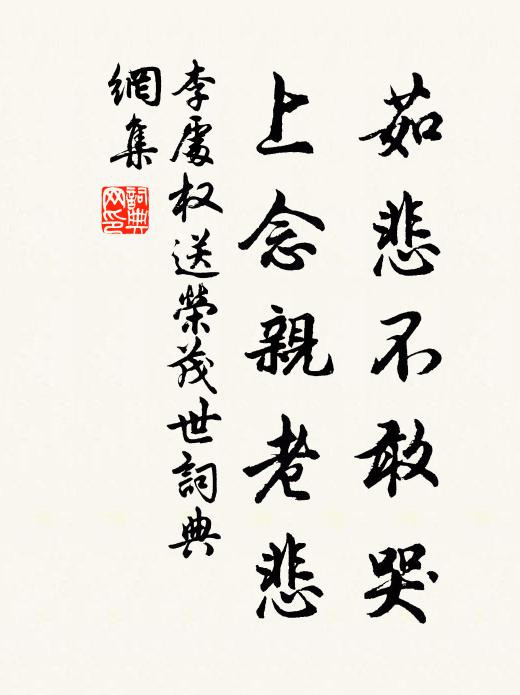 茹悲不敢哭
上念親老悲
李處权送榮茂世詞典
網集
詞典網印